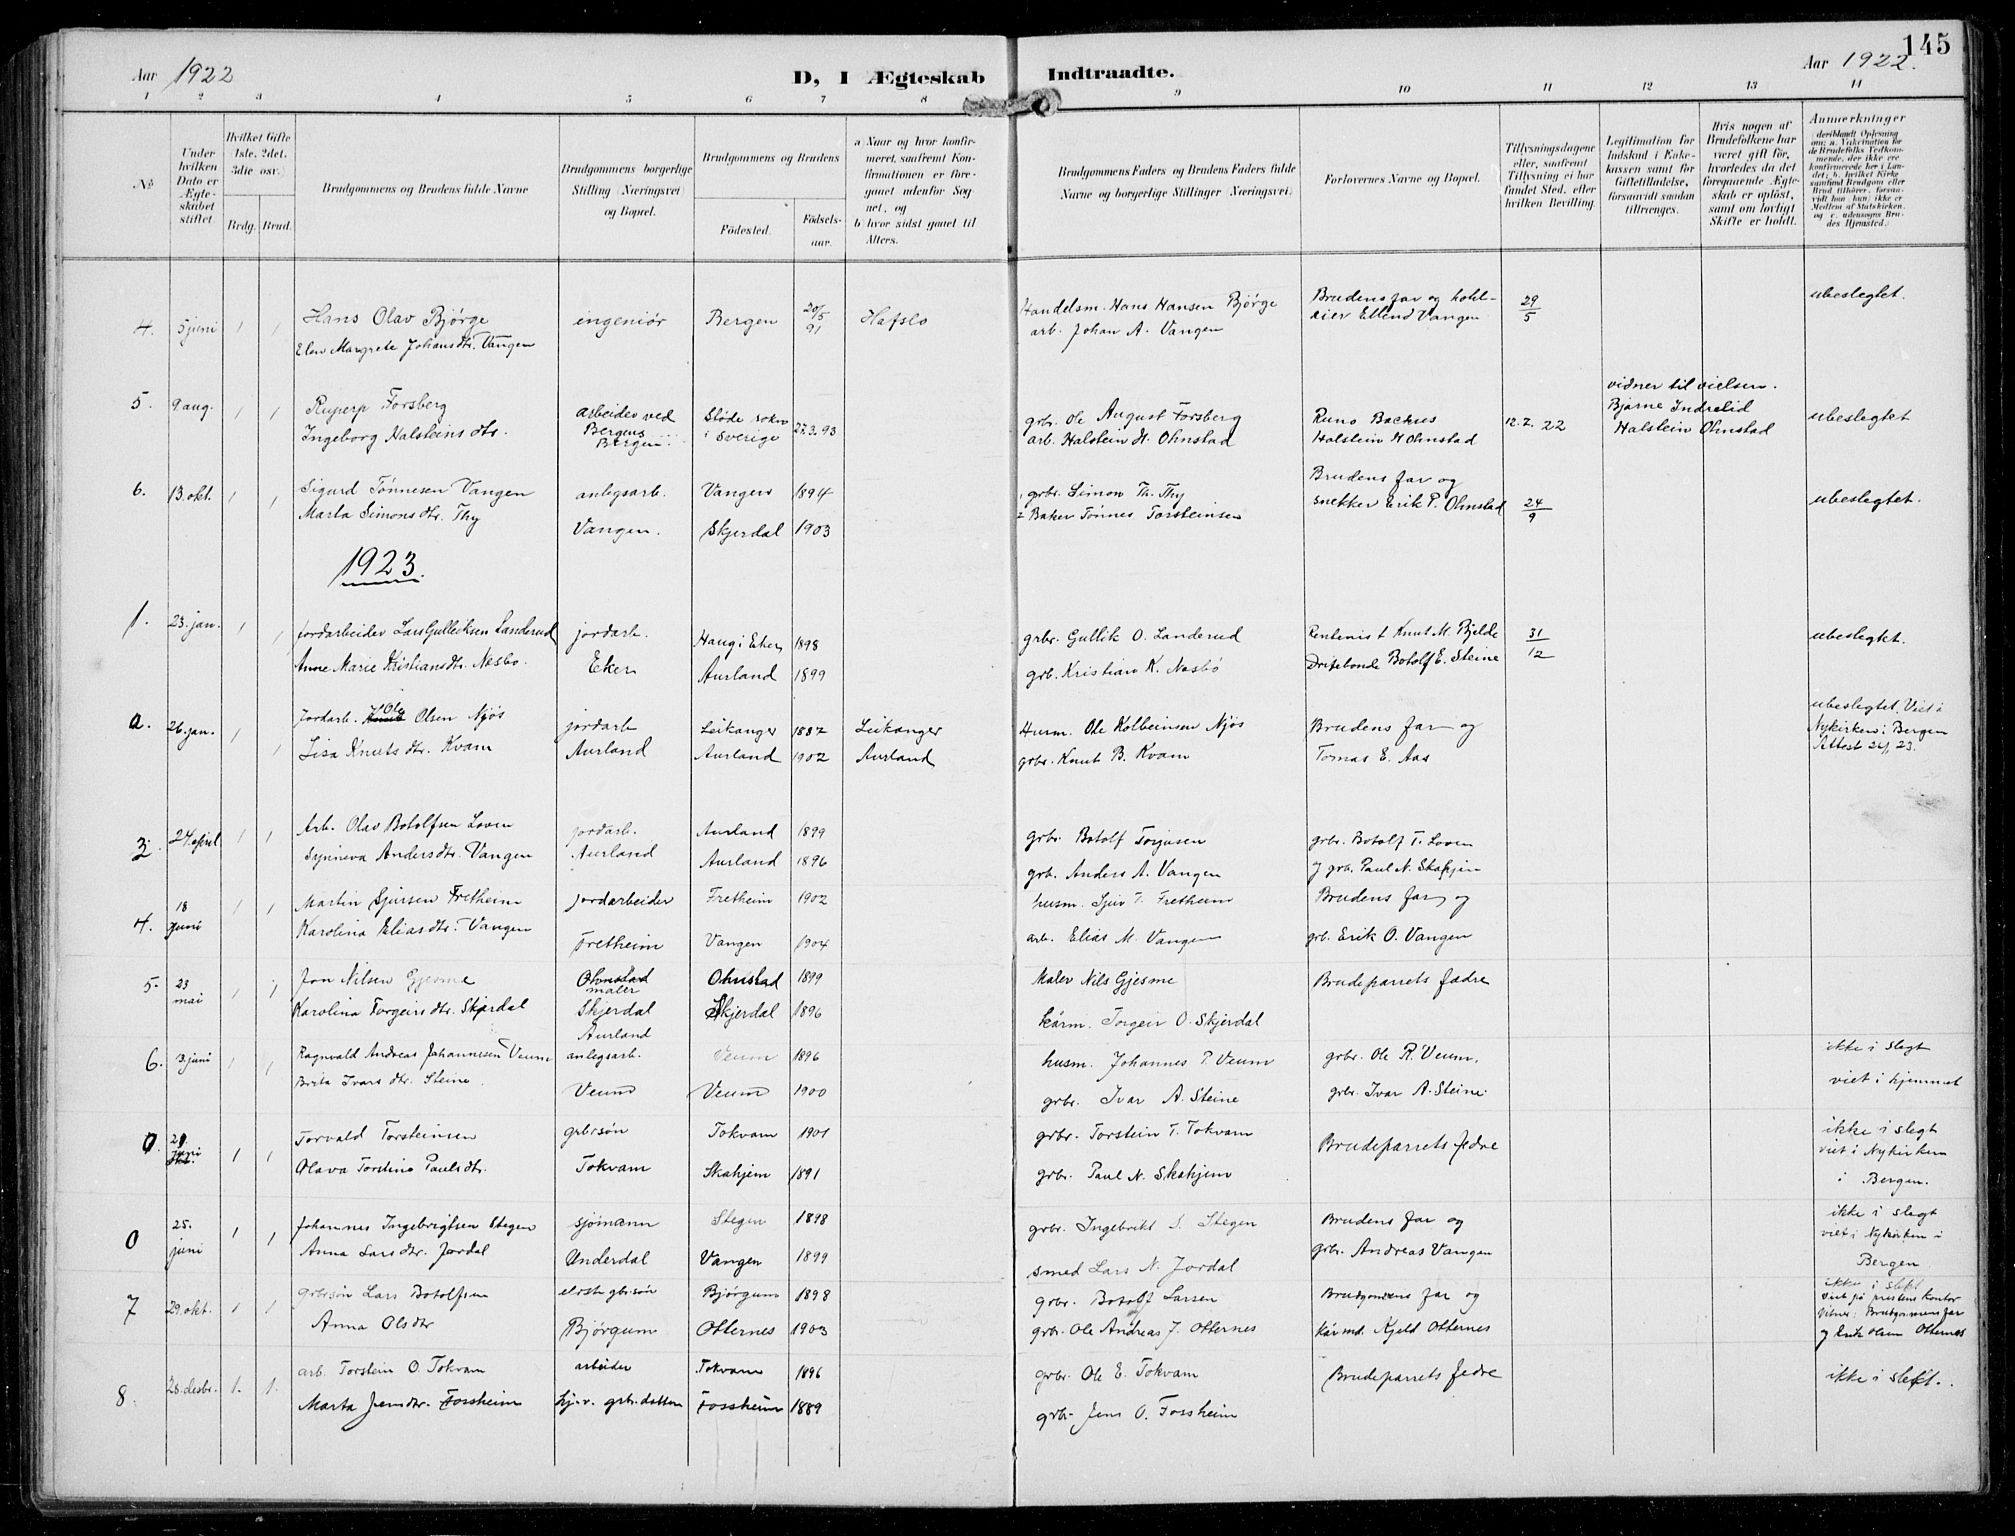 145
Aar 1922
D, I Ægteskab Indtraadte.
Aar 1922.
1 2 3 4 5 6 7 8 9 10 11 12 13 14
No.
Under hvilken Dato er Ægteskabet stiftet
Hvilket Gifte 1ste. 2det. 3die osv.
Brdg. Brud.
Brudgommens og Brudens fulde Navne
Brudgommens borgerlige Stilling (Næringsvei) og Bopæl.
Brudgommens og Brudens
Fødested.
Fødselsaar.
a) Naar og hvor konfirmeret, saafremt Konfirmationen er foregaaet udenfor Sognet, og
b) hvor sidst gaaet til Alters.
Brudgommens Faders og Brudens Faders fulde Navne og borgerlige Stillinger (Næringsvei).
Forlovernes Navne og Bopæl.
Tillysningsdagene eller, saafremt Tillysning ei har fundet Sted, efter hvilken Bevilling.
Legitimation for Indskud i Enkekassen samt for Giftetilladelse, forsaavidt saadan tiltrænges.
Hvis nogen af Brudefolkene har været gift før, hvorledes da det foregaaende Ægteskab er opløst, samt om lovligt Skifte er holdt.
Anmerkninger
4. 5 juni 1 1 Hans Olav Bjørge ingeniør Bergen 20/5 91 Hafslo Handelsm. Hans Hansen Bjørge Brudens far og hotel- 29/5 ubeslegtet.
Elen Margrete Johansdtr. Vangen arb. Johan A. Vangen eier Ellend Vangen
5. 9 aug. 1 1 Ruperp Forsberg arbeider ved Støde sokn 27.3.93 grb. Ole August Forsberg Runo Backus 12.7.22 vidner til vielsen. ubeslegtet
Ingeborg Halsteins dtr. Bergens Bergen i Sverige arb. Halstein H. Ohnstad Halstein H Ohnstad Bjarne Indrelid
Halstein Ohnstad
6. 13. okt. 1 1 Sigurd Tønnesen Vangen anlegsarb. Vangen 1894 1 grbr. Simon Th. Thy Brudens far og 24/9 ubeslegtet.
Marta Simonsdtr. Thy Vangen. Skjerdal 1903 2 Baker Tønnes Torsteinsen snekker Erik P. Ohnstad
1923.
1. 23. jan. 1 1 Jordarbeider Lars Gulleksen Landerud jordarb. Haug i Eker 1898 grbr. Gullik O. Landerud Rentenist Knut M. Bjelde 31/12 ubeslegtet.
Anne Marie Kristiansdtr. Nesbø. Eker Aurland 1899 grb. Kristian K. Nesbø Driftsbonde Botolf E. Steine
a. 26. jan. 1 1 Jordarb. Ole Olsen Njøs jordarb Leikanger 1887 Leikanger Husm. Ole Kolbeinsen Njøs Brudens far og ubeslegtet. Viet i
Lisa Knuts dtr. Kvam Aurland Aurland 1902 Aurland grbr. Knut B. Kvam Tomas E. Aas Nykirken i Bergen
Attest 24/1 23.
3. 24. april 1 1 Arb. Olav Botolfsen Loven jordarb. Aurland 1899 grbr. Botolf Torjusen grbr. Botolf T. Loven
Synneva Andersdtr. Vangen Aurland Aurland 1896 grb. Anders A. Vangen og grb. Paul N. Skahjem
4. 18 juni 1 1 Martin Sjursen Fretheim jordarbeider Fretheim 1902 husm. Sjur T. Fretheim Brudens far og
Karolina Eliasdtr. Vangen Fretheim Vangen 1904 arb. Elias M. Vangen grb. Erik O. Vangen
5. 23 mai 1 1 Jon Nilsen Gjesme Ohnstad maler Ohnstad 1899 Maler Nils Gjesme Brudeparrets fedre
Karolina Torgeirsdtr. Skjerdal Skjerdal Aurland Skjerdal 1896 kårm. Torgeir O. Skjerdal
6. 3 juni 1 1 Ragnvald Andreas Johannesen Veum anlegsarb. Veum 1896 husm. Johannes P. Veum grbr. Ole R. Veum. ikke i slegt
Brita Ivarsdtr. Steine Veum Veum 1900 grbr. Ivar A. Steine grbr. Ivar A. Steine viet i hjemmet
0 21. juni 1 1 Torvald Torsteinsen grbrsøn Tokvam 1901 grbr. Torstein T. Tokvam Brudeparrets fedre ikke i slegt
Olava Torstina Paulsdtr. Tokvam Skahjem 1891 grbr. Paul N. Skahjem viet i Nykirken
i Bergen.
0 25. juni 1 1 Johannes Ingebrigtsen Stegen sjømann Stegen 1898 grbr. Ingebrikt S. Stegen Brudens far og ikke i slegt
Anna Larsdtr. Jordal Underdal Vangen 1899 smed Lars N. Jordal grbr. Andreas Vangen viet i Nykirken i
Bergen
7 29. okt. 1 1 grbrsøn Lars Botolfsen elste gbrsøn Bjørgum 1898 grbr. Botolf Larsen Brudgomens far og ikke i slekt
Anna Olsdtr Bjørgum Otternes 1903 grbr. Ole Andreas J. Otternes kårmd. Kjeld Otternes viet på prestens kontor
Vitner: Brudgommens far
og Erik Olsen Otternes
8. 28. desbr. 1. 1. arb. Torstein O. Tokvam arbeider Tokvam 1896 grbr. Ole E. Tokvam Brudeparrets fedre ikke i slekt.
Marta Jensdtr. Fossheim hjv. grbr.datter Fossheim 1889 grbr. Jens O. Fossheim